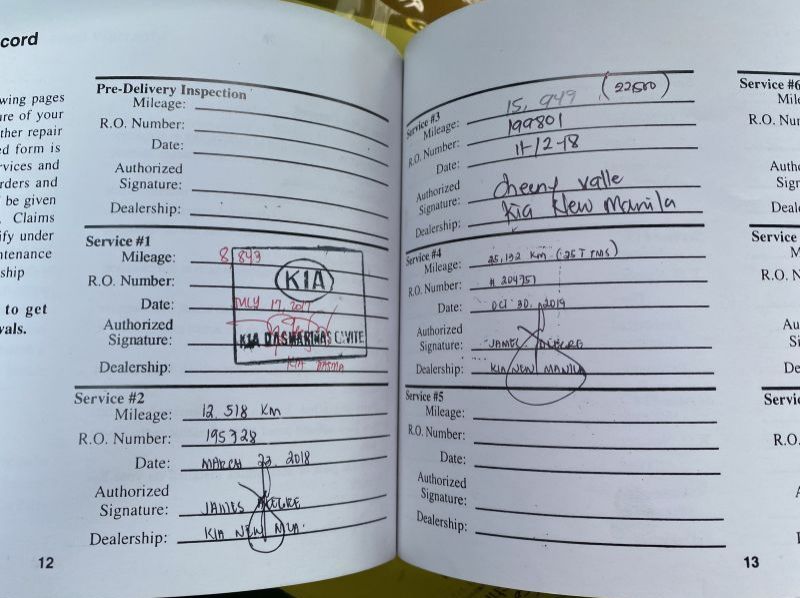 cord
wing pages
re of your
ther repair
d form is
vices and
rders and
be given
Claims
ify under
ntenance
ship
to get
vals.
Pre-Delivery Inspection
Mileage:
R.O. Number:
Date:
Authorized
Signature:
Dealership:
Service #1
Mileage: 8,843
R.O. Number:
KIA
Date: JULY 17, 2017
Authorized
Signature:
KIA DASMARIÑAS CAVITE
Dealership: KIA DASMA
Service #2
Mileage: 12,518 KM
R.O. Number: 195328
Date: MARCH 23, 2018
Authorized
Signature: JAMES
Dealership: KIA NEW MLA.
12
Service #3
Mileage: 15,949 (22500)
R.O. Number: 199801
Date: 11-12-18
Authorized
Signature: Cheeny Valle
Dealership: Kia New Manila
Service #4
Mileage: 25,132 KM (25T PMS)
R.O. Number: # 204757
Date: OCT. 30, 2019
Authorized
Signature: JAMES
Dealership: KIA NEW MANILA
Service #5
Mileage:
R.O. Number:
Date:
Authorized
Signature:
Dealership:
Service #6
Mile
R.O. Num
Autho
Signa
Deale
Service
M
R.O. N
Au
Si
Deal
Servic
R.O.
A
S
D
13